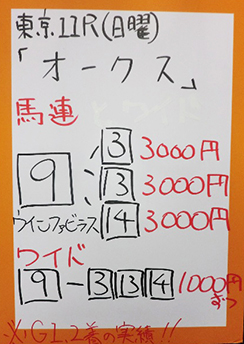 東京11R(日曜)
「オークス」
馬連
3 3000円
9 13 3000円
ウインファビラス 14 3000円
ワイド
9-3 13 14 1000円
ずつ
※GI.2着の実績!!